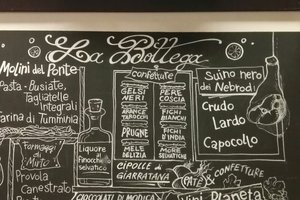 La Bottega
Molini del Ponte
Pasta - Busiate,
Tagliatelle
Integrali
Farina di Tumminia
Formaggi
di
Provola
Canestrato
Liquore
Finocchietto
selvatico
confetture
GELSI
NERI
ARANCE
TAROCCHI
PRUGNE
MELE
DELIZIA
PERE
COSCIA
FICHI
FICHI
D'INDIA
MORE
SELVATICHE
CIPOLLE di
GIARRATANA
CIOCCOLATI DI MODICA
Suino nero
dei Nebrodi
Crudo
Lardo
Capocollo
PATÈ &
CONFETTURE
Vini Planeta